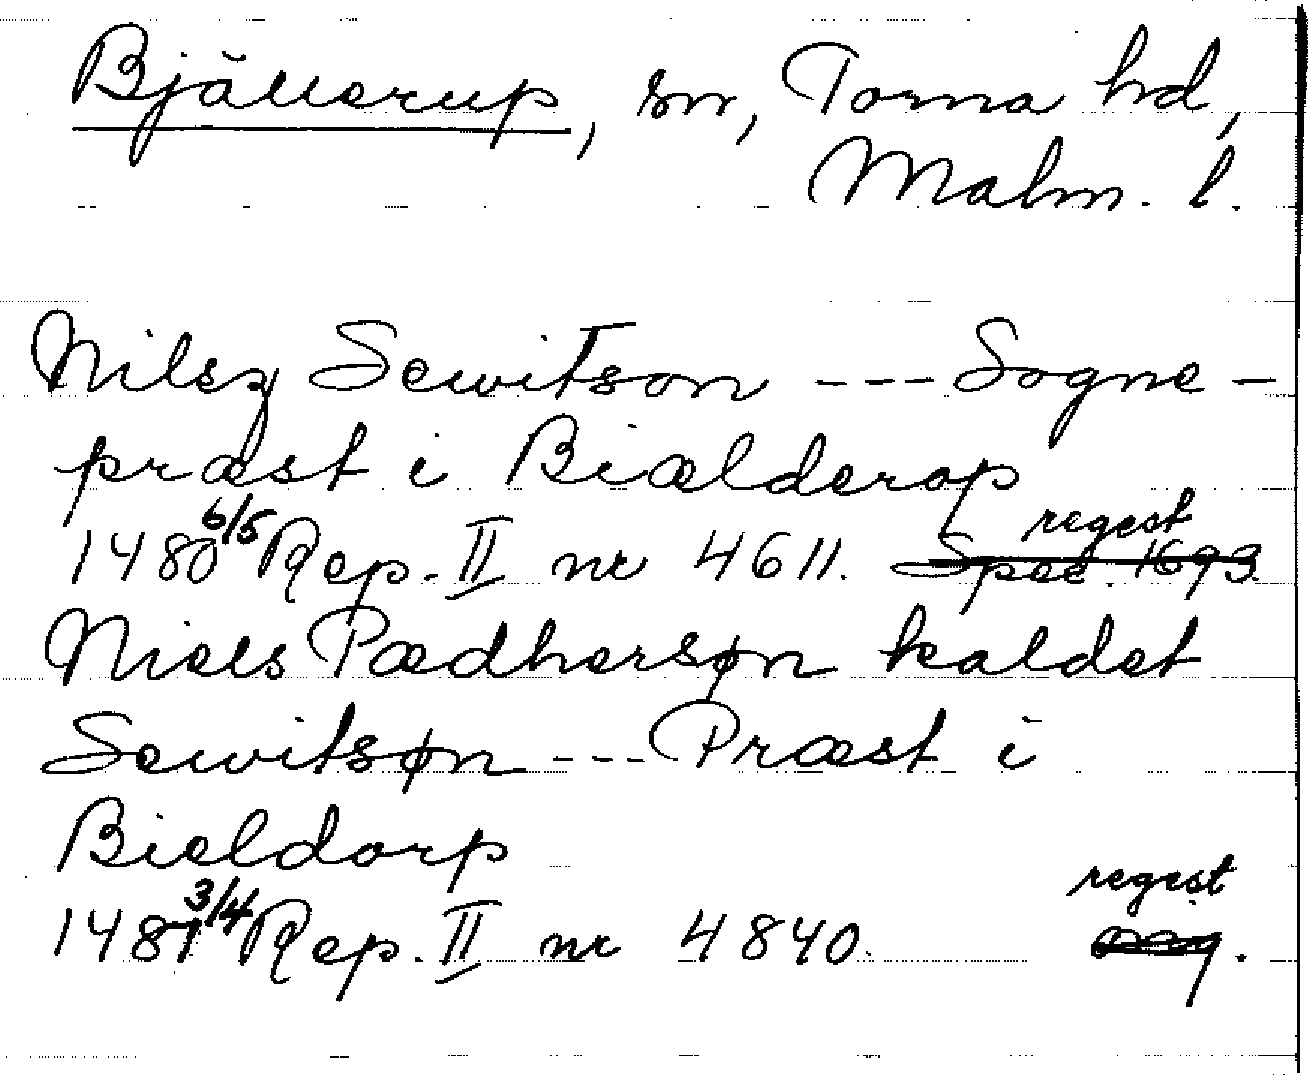 Bjällerup, sn, Torna hd,
Malm. l.
Nilsz Sewitson --- Sogne-
præst i Biælderop
regest
1480 6/5 Rep. II nr 4611. Spec. 1693.
Niels Pædhersøn kaldet
Sewitsøn --- Præst i
Bieldorp
regest
1481 3/4 Rep. II nr 4840.